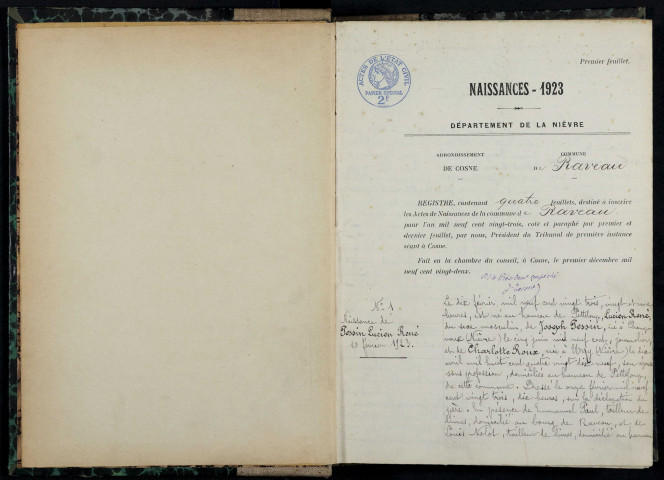 Premier feuillet.
ACTES DE L'ETAT CIVIL
PAPIER SPECIAL
2F
NAISSANCES - 1923
DÉPARTEMENT DE LA NIÈVRE
ARRONDISSEMENT
DE COSNE
COMMUNE
DE Raveau
REGISTRE, contenant quatre feuillets, destiné à inscrire
les Actes de Naissances de la commune de Raveau
pour l'an mil neuf cent vingt-trois, coté et paraphé par premier et
dernier feuillet, par nous, Président du Tribunal de première instance
séant à Cosne.
Fait en la chambre du conseil, à Cosne, le premier décembre mil
neuf cent vingt-deux.
No 1
Naissance de
Tessin Lucien René
10 février 1923.
Le dix février mil neuf cent vingt trois, vingt et une
heures, est né au hameau de Lucien René,
du sexe masculin, de Joseph Tessin, né à
(Nièvre) le cinq juin mil neuf cent, journalier,
et de Charlotte Roux, née à Urzy (Nièvre) le dix
avril mil huit cent quatre vingt dix neuf, son épouse
sans profession, domiciliés au hameau de
de cette commune. Dressé le onze février mil neuf
cent vingt trois, dix heures, sur la déclaration du
père. En présence de Emmanuel Paul, tailleur de
limes, domicilié au bourg de Raveau, et de
Louis tailleur de limes, domicilié au hameau